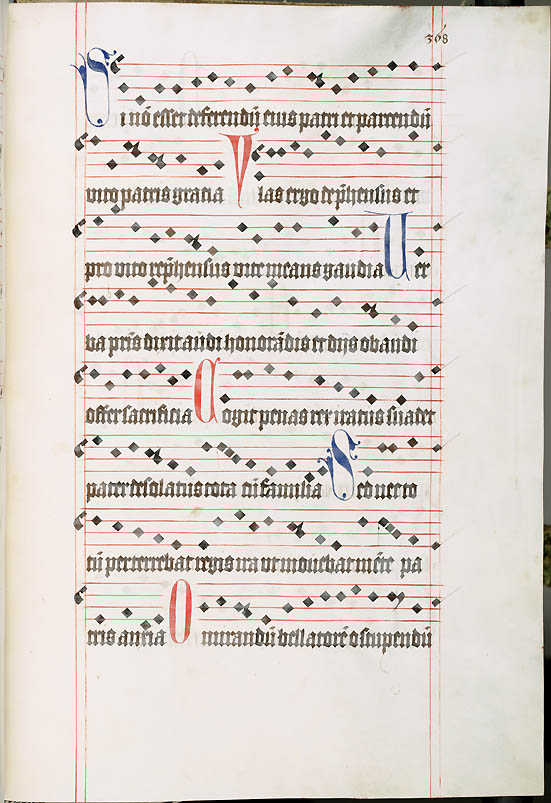 368
Si nō esset deferendū eius patri et parcendū
vito patris gracia Vlas ergo dephensus et
pro vito rephensus vite means gaudia Uer
ba pris dixit audi honorādis et dijs obaudi
offer sacrificia Cogit penas rex iratus suadet
pater desolatus tota cū familia Sed nec to
cū perterrebat regis ira ut mouebat mēte pa
tris anxia O mirandū bellatorē o stupendū